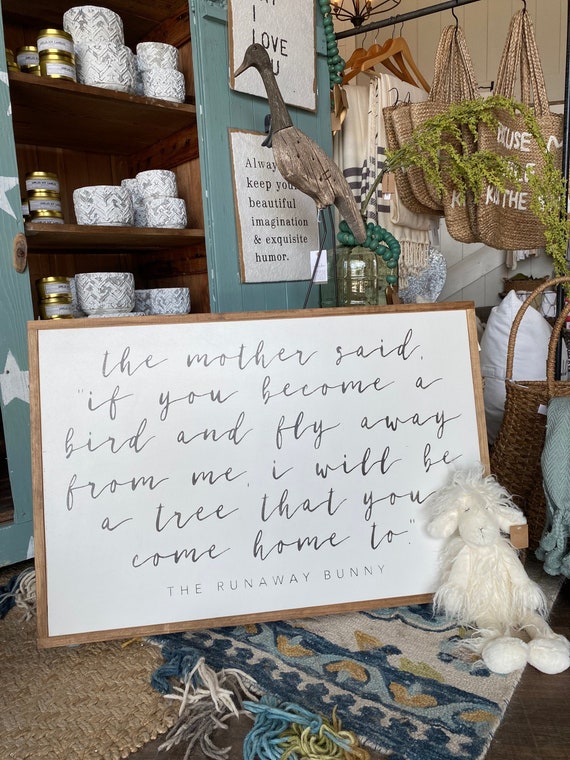 I
LOVE
YOU
Always
keep your
beautiful
imagination
& exquisite
humor.
the mother said,
"if you become a
bird and fly away
from me, i will be
a tree that you
come home to."
THE RUNAWAY BUNNY